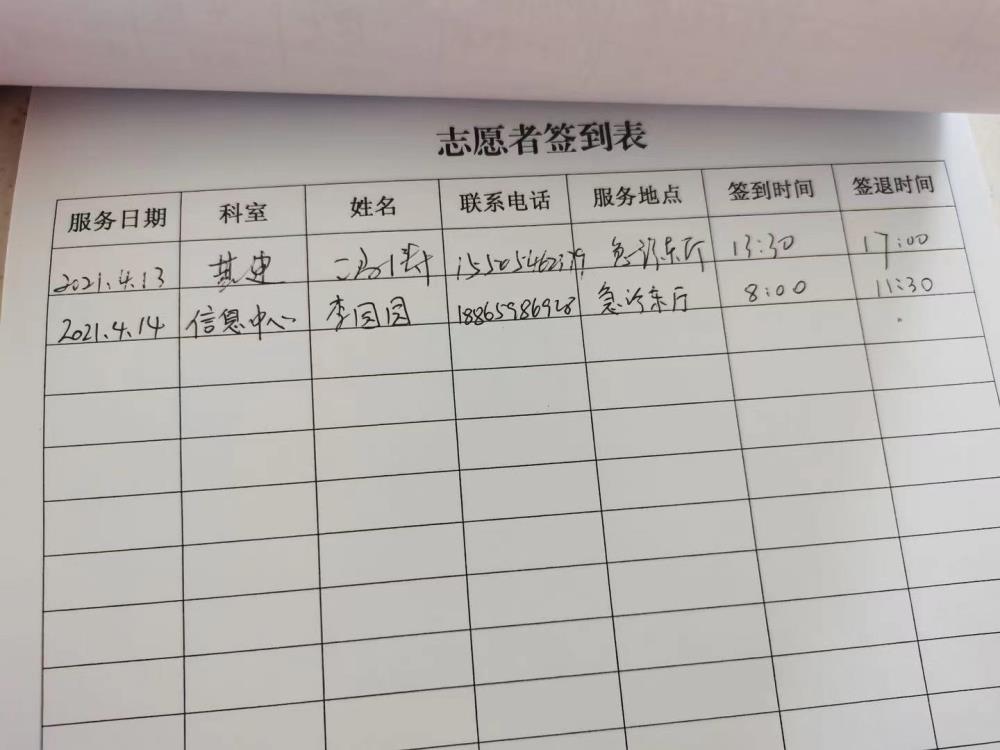 志愿者签到表
服务日期 科室 姓名 联系电话 服务地点 签到时间 签退时间
2021.4.13 基建 急诊东厅 13:30 17:00
2021.4.14 信息中心 李园园 18865986928 急诊东厅 8:00 11:30